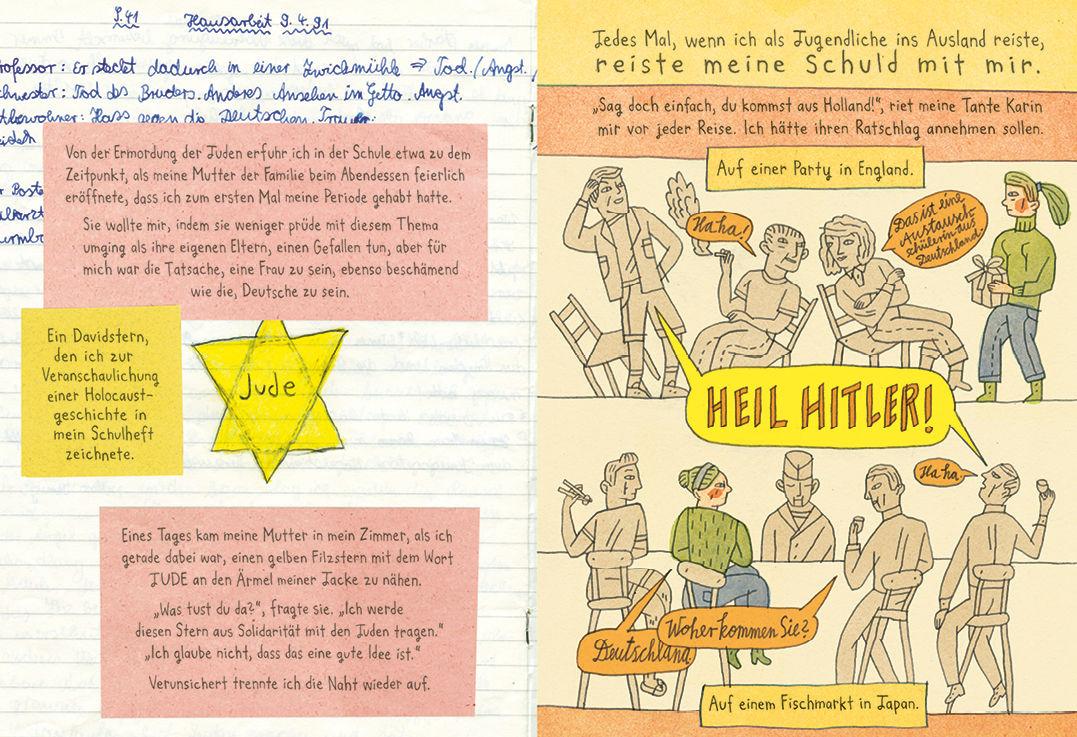 S.41 Hausarbeit 9.4.91
rofessor: Er steckt dadurch in einer Zwickmühle ⇒ Tod./Angst./
chwester: Tod des Bruders. Anderes Ansehen im Getto. Angst.
ttbewohner: Hass gegen die Deutschen. Trauer.
Von der Ermordung der Juden erfuhr ich in der Schule etwa zu dem
Zeitpunkt, als meine Mutter der Familie beim Abendessen feierlich
eröffnete, dass ich zum ersten Mal meine Periode gehabt hatte.
Sie wollte mir, indem sie weniger prüde mit diesem Thema
umging als ihre eigenen Eltern, einen Gefallen tun, aber für
mich war die Tatsache, eine Frau zu sein, ebenso beschämend
wie die, Deutsche zu sein.
Ein Davidstern,
den ich zur
Veranschaulichung
einer Holocaust-
geschichte in
mein Schulheft
zeichnete.
Jude
Eines Tages kam meine Mutter in mein Zimmer, als ich
gerade dabei war, einen gelben Filzstern mit dem Wort
JUDE an den Ärmel meiner Jacke zu nähen.
„Was tust du da?“, fragte sie. „Ich werde
diesen Stern aus Solidarität mit den Juden tragen.“
„Ich glaube nicht, dass das eine gute Idee ist.“
Verunsichert trennte ich die Naht wieder auf.
Jedes Mal, wenn ich als Jugendliche ins Ausland reiste,
reiste meine Schuld mit mir.
„Sag doch einfach, du kommst aus Holland!“, riet meine Tante Karin
mir vor jeder Reise. Ich hätte ihren Ratschlag annehmen sollen.
Auf einer Party in England.
Haha!
Das ist eine
Austausch-
schülerin aus
Deutschland.
HEIL HITLER!
Haha.
Woher kommen Sie?
Deutschland.
Auf einem Fischmarkt in Japan.